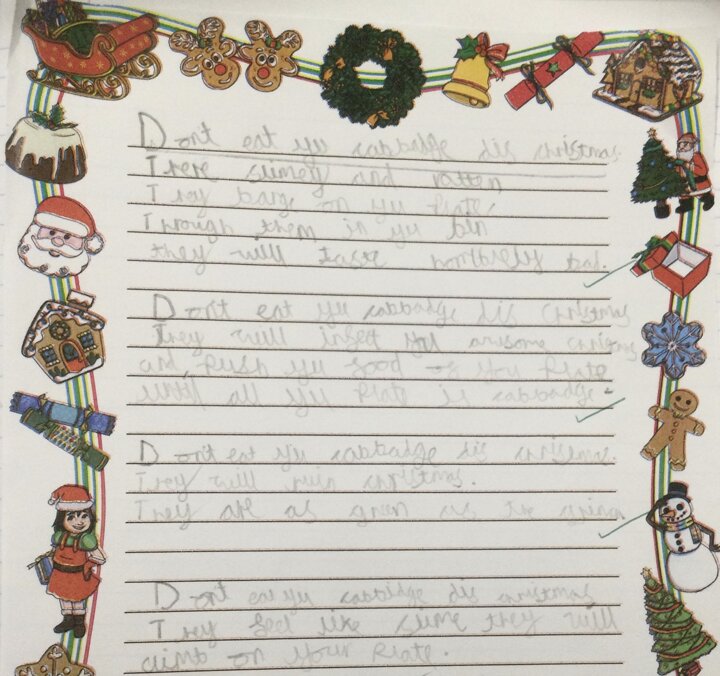 Dont eat yu cabbadge dis christmas
There slimey and rotten
They barge on yu plate,
Through them in yu bin
they will taste horribley bad.
Dont eat yu cabbadge dis christmas
They will infest you awsome
and push yu food off your plate
until all yu plate is cabbadge.
Don't eat yu cabbadge dis christmas.
They will ruin christmas.
They are as green as the grinch
Dont eat yu cabbidge dis christmas
They feel like slime they will
climb on your plate.